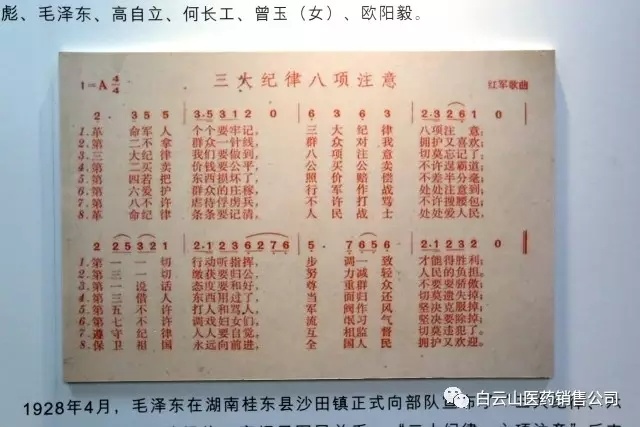 彪、毛泽东、高自立、何长工、曾玉（女）、欧阳毅。
1=A 4/4 三大纪律八项注意 红军歌曲
2· 3 5 5 3·5 3 1 2 0 6 3 6 3 2·3 2 6 1 0
1.革命军人个个要牢记，三大纪律八项注意；
2.第二不拿群众一针线，群众对我拥护又喜欢；
3.三大纪律我们要做到，八项注意切莫忘记了；
4.第二买卖价钱要公平，公买公卖不许逞霸道；
5.第四若把东西损坏了，照价赔偿不差半分毫；
6.第六爱护群众的庄稼，行军作战处处注意到；
7.第八不许虐待俘虏兵，不许打骂不许搜腰包；
8.革命纪律条条要记清，人民战士处处爱人民；
2 2 5 3 2 1 2·1 2 3 6 2 7 6 5· 7 6 5 6 2·1 2 3 2 0
1.第一一切行动听指挥，步调一致才能得胜利；
2.第三一切缴获要归公，努力减轻人民的负担。
3.第一说话态度要和好，尊重群众不要耍骄傲；
4.第三借人东西用过了，当面归还切莫遗失掉；
5.第五不许打人和骂人，军阀作风坚决克服掉；
6.第七不许调戏妇女们，流氓习气坚决要除掉；
7.遵守纪律人人要自觉，互相监督切莫违犯了；
8.保卫祖国永远向前进，全国人民拥护又欢迎。
白云山医药销售公司
1928年4月，毛泽东在湖南桂东县沙田镇正式向部队宣布